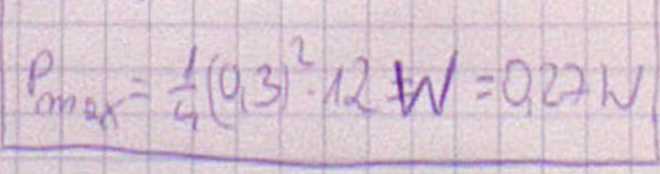 P_max = 1/4 (0,3)² · 12 W = 0,27 W